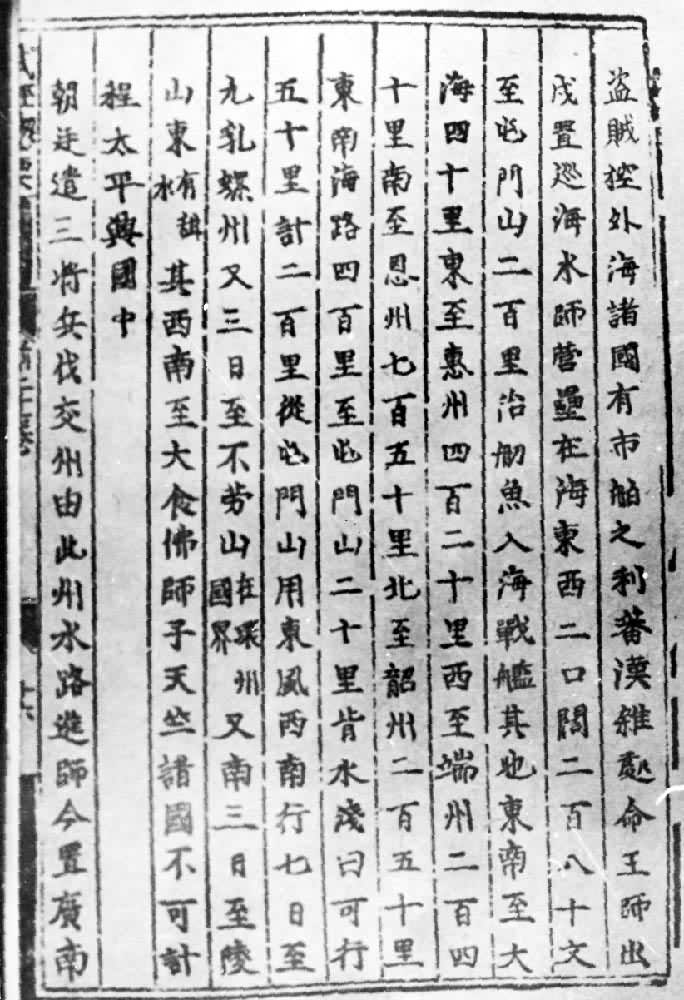 盜賊控外海諸國有市舶之利蕃漢雜處命王師出
戍置巡海水師營壘在海東西二口闊二百八十文
至屯門山二百里治舠魚入海戰艦其地東南至大
海四十里東至惠州四百二十里西至端州二百四
十里南至恩州七百五十里北至韶州二百五十里
東南海路四百里至屯門山二十里皆水淺日可行
五十里計二百里從屯門山用東風西南行七日至
九乳螺州又三日至不勞山在環州國界又南三日至陵
山東有水其西南至大食佛師子天竺諸國不可計
程太平興國中
朝廷遣三將兵伐交州由此州水路進師今置廣南
武經總要